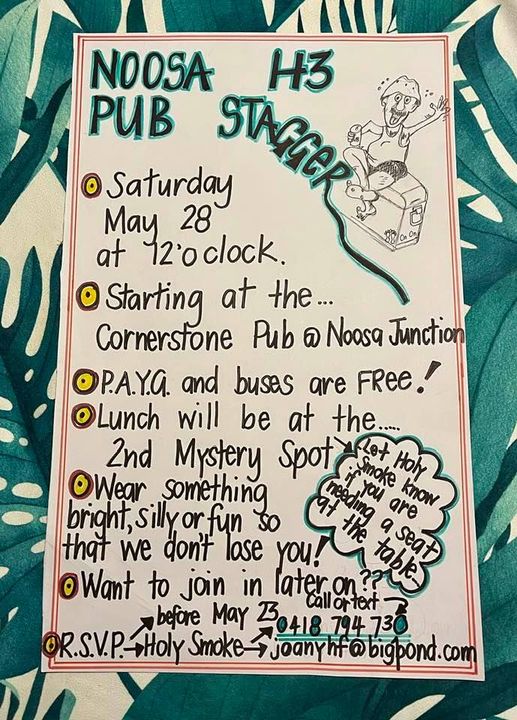 NOOSA H3
PUB STAGGER
Saturday
May 28
at 12'o clock.
Starting at the...
Cornerstone Pub @ Noosa Junction
P.A.Y.G. and buses are FREE!
Lunch will be at the.....
2nd Mystery Spot
Let Holy
Smoke know
if you are
needing a seat
at the table..
Wear something
bright, silly or fun so
that we don't lose you!
Want to join in later on??
Call or text
before May 23
0418 794 730
R.S.V.P. Holy Smoke joanyhf@bigpond.com